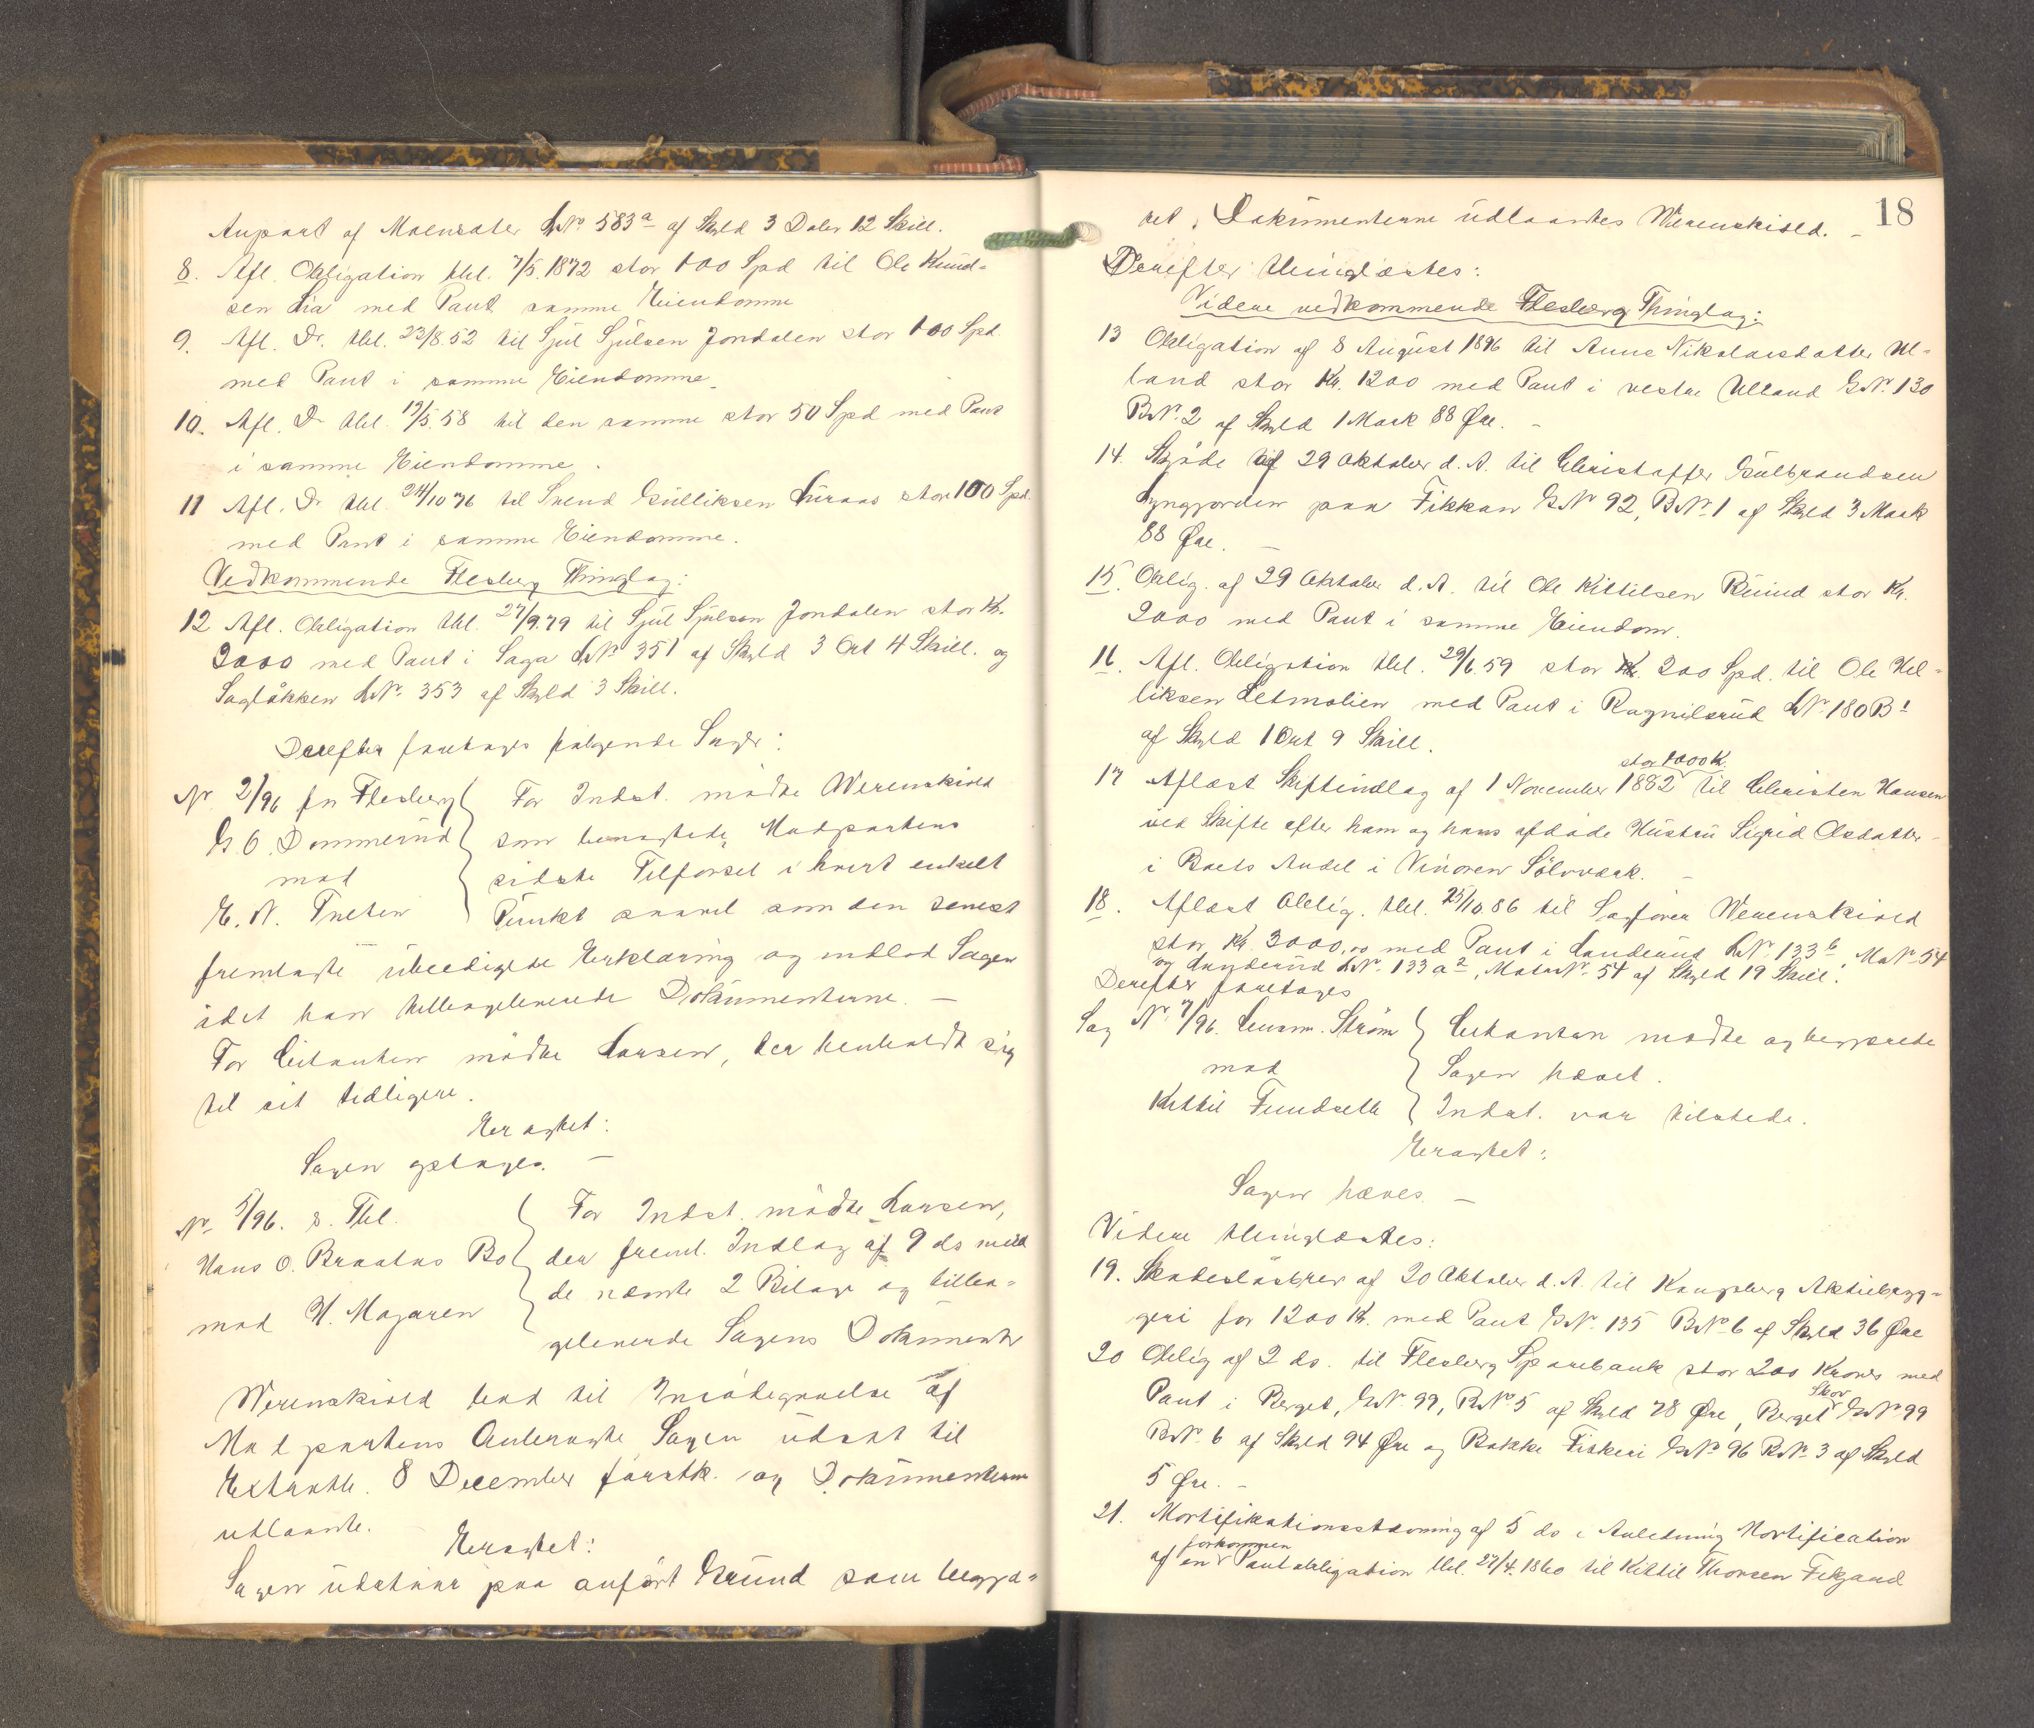 Anpart af Moensæter LNº 583a af Skyld 3 Daler 12 Skill.
8. Afl. Obligation thl. 7/5.1872 stor 100 Spd til Ole Knud-
sen Lia med Pant samme Eiendomme
9. Afl. Do. thl. 23/8.52 til Sjul Sjulsen Jondalen stor 100 Spd.
med Pant i samme Eiendomme.
10. Afl. Do thl. 19/5.58 til den samme stor 50 Spd med Pant
i samme Eiendomme.
11 Afl. Do thl. 24/10 76 til Svend Gulliksen Luraas stor 100 Spd.
med Pant i samme Eiendomme.
Vedkommende Flesberg Thinglag:
12 Afl. Obligation thl. 27/9.79 til Sjul Sjulsen Jondalen stor Kr.
2000 med Pant i Saga LNº 351 af Skyld 3 Ort 4 Skill. og
Sagløkken LNº. 353 af Skyld 3 Skill.
Derefter foretages følgende Sager:
Nr 2/96 fra Flesberg
G O. Dommerud
mod
E. N. Tveten
For Indst. mødte Werenskiold
som benægtede Modpartens
sidste Tilførsel i hvert enkelt
Punkt saavel som den senest
fremlagte ubeedigede Erklæring og indlod Sagen
idet han tilbageleverede Dokumenterne. —
For Citanten mødte Larsen, der henholdt sig
til sit tidligere.
Eragtet:
Sagen optages. —
Nr 5/96. s. Thl.
Hans O. Braataas Bo
mod H. Mogaren
For Indst. mødte Larsen,
der freml. Indlæg af 9 ds med
de nævnte 2 Bilage og tilba-
geleverede Sagens Dokumenter
Werenskiold bad til Imødegaaelse af
Modpartens Anbragte Sagen udsat til
Extrath. 8 December førstk. og Dokumenterne
udlaante.
Eragtet:
Sagen udstaar paa anført Grund som begjæ-
18
ret. Dokumenterne udlaantes Werenskiold. —
Derefter thinglæstes:
Videre vedkommende Flesberg Thinglag:
13 Obligation af 8 August 1896 til Anne Nikolaisdatter Ul-
land stor Kr. 1200 med Pant i vestre Ulland GNº. 130
BNº. 2 af Skyld 1 Mark 88 Øre. —
14. Skjøde af 29 Oktober d. A. til Christoffer Gulbrandsen
Lyngjorden paa Fikkan GNº 92, BNº 1 af Skyld 3 Mark
88 Øre. —
15. Oblig. af 29 Oktober d. A. til Ole Kittilsen Ruud stor Kr.
2000 med Pant i samme Eiendom.
16. Afl. Obligation thl. 29/6.59 stor 200 Spd. til Ole Hel-
liksen Setmolien med Pant i Ragnilsrud LNº 180 B1
af Skyld 1 Ort 9 Skill.
stor 1000 Kr.
17 Aflæst Skifteudlæg af 1 November 1882 til Christen Hansen
ved Skifte efter ham og hans afdøde Hustru Sigrid Olsdatter
i Boets Andel i Vinoren Sølvværk. —
18. Aflæst Oblig. thl. 25/10.86 til Sagfører Werenskiold
stor Kr. 3000,00 med Pant i Landerud LNº. 133b, MaNº 54
og Landerud LNº. 133a2, MatrNº 54 af Skyld 19 Skill.
Derefter foretages
Sag Nº. 7/96. Lensm. Strøm
mod
Kittil Fundselk
Citanten mødte og begjærede
Sagen hævet.
Indst. var tilstede.
Eragtet:
Sagen hæves —
Videre thinglæstes:
19. Skadesløsbrev af 20 Oktober d. A. til Kongsberg Aktiebryg-
geri for 1200 Kr. med Pant GNº. 135 BNº 6 af Skyld 36 Øre
20 Oblig af 2 ds. til Flesberg Sparebank stor 200 Kroner med
Pant i Berget, GNº. 99, BNº 5 af Skyld 78 Øre, Berget Skov GNº 99
BNº. 6 af Skyld 94 Øre og Bakke Fiskeri GNº 96 BNº 3 af Skyld
5 Øre. —
21. Mortifikationsstævning af 5 ds i Anledning Mortification
af en forkommen Pantobligation thl. 27/4.1860 til Kittil Thorsen Fikjand